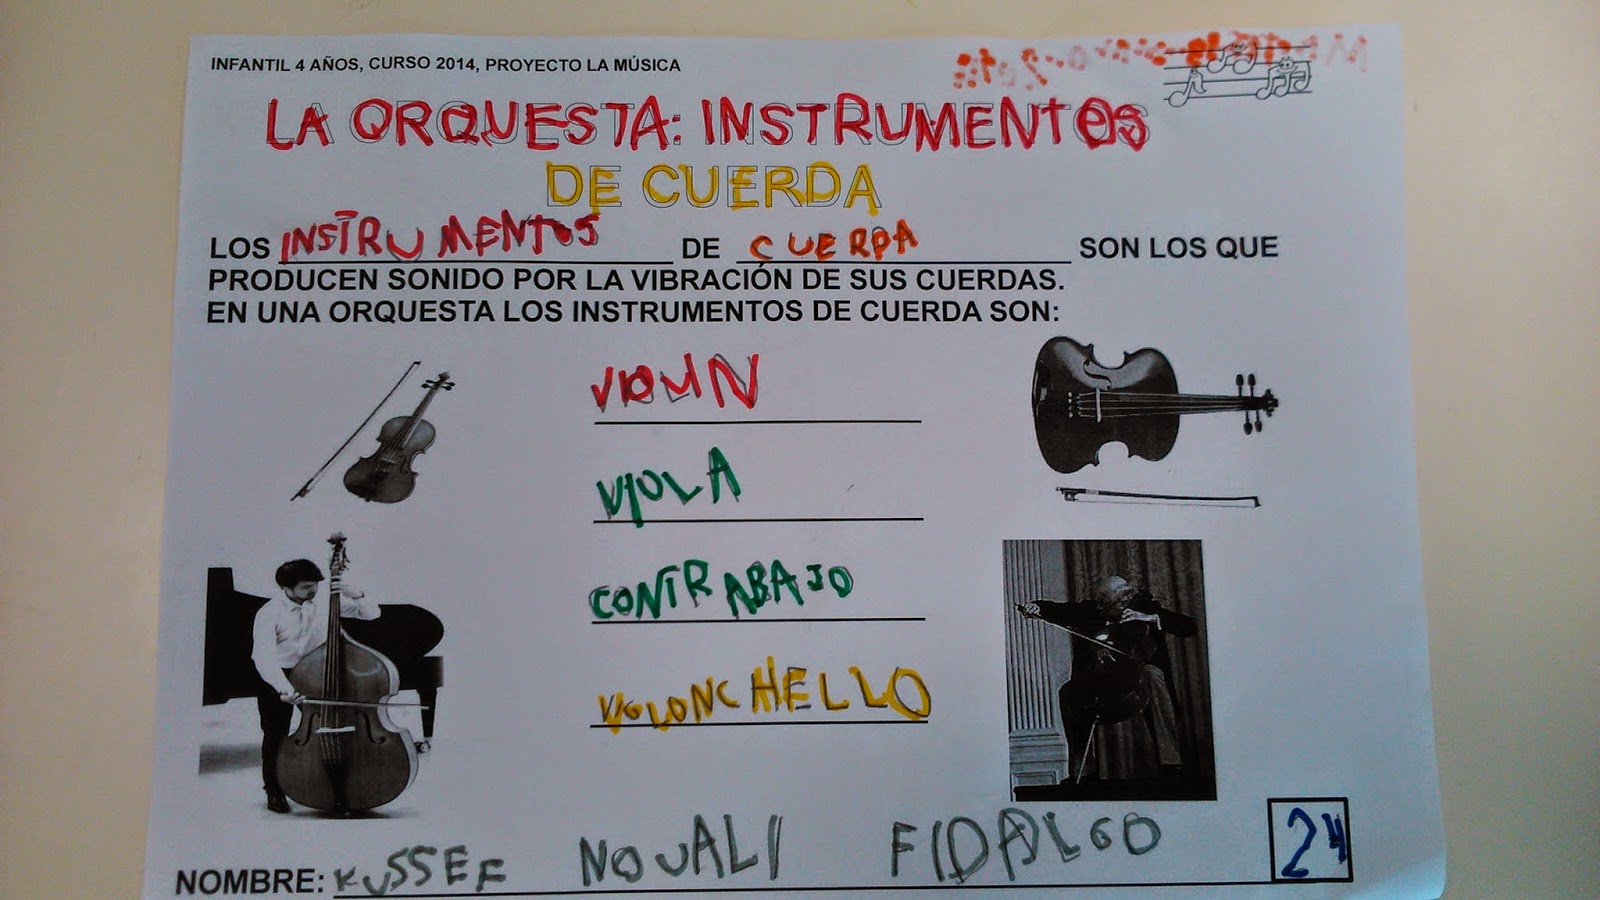 INFANTIL 4 AÑOS, CURSO 2014, PROYECTO LA MÚSICA
LA ORQUESTA: INSTRUMENTOS
DE CUERDA
LOS INSTRUMENTOS DE CUERDA SON LOS QUE
PRODUCEN SONIDO POR LA VIBRACIÓN DE SUS CUERDAS.
EN UNA ORQUESTA LOS INSTRUMENTOS DE CUERDA SON:
VIOLIN
VIOLA
CONTRABAJO
VIOLONCHELLO
NOMBRE: KUSSEF NOUALI FIDALGO 24